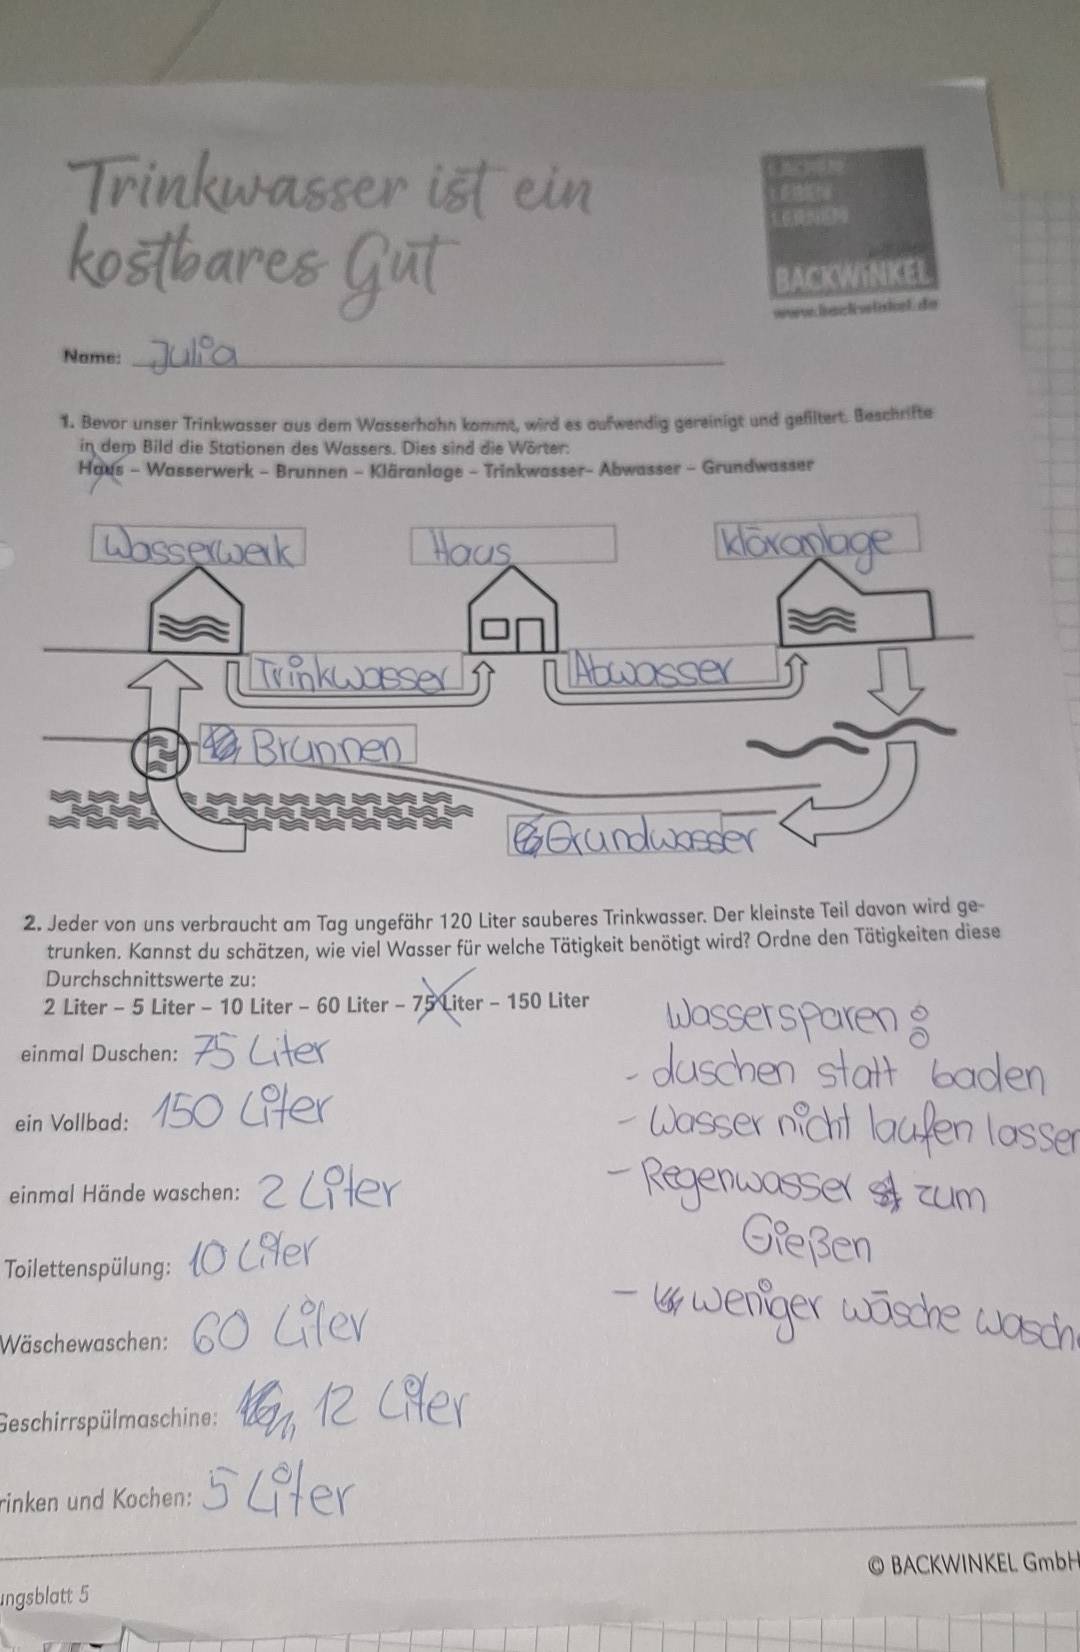 Trinkwasser ist ein
kostbares Gut
LACHEN
LEBEN
LERNEN
BACKWINKEL
www.backwinkel.de
Name: Julia
1. Bevor unser Trinkwasser aus dem Wasserhahn kommt, wird es aufwendig gereinigt und gefiltert. Beschrifte
in dem Bild die Stationen des Wassers. Dies sind die Wörter:
Haus – Wasserwerk – Brunnen – Kläranlage – Trinkwasser– Abwasser – Grundwasser
Wasserwerk Haus Kläranlage
Trinkwasser Abwasser
Brunnen
Grundwasser
2. Jeder von uns verbraucht am Tag ungefähr 120 Liter sauberes Trinkwasser. Der kleinste Teil davon wird ge-
trunken. Kannst du schätzen, wie viel Wasser für welche Tätigkeit benötigt wird? Ordne den Tätigkeiten diese
Durchschnittswerte zu:
2 Liter – 5 Liter – 10 Liter – 60 Liter – 75 Liter – 150 Liter
einmal Duschen: 75 Liter
ein Vollbad: 150 Liter
einmal Hände waschen: 2 Liter
Toilettenspülung: 10 Liter
Wäschewaschen: 60 Liter
Geschirrspülmaschine: 12 Liter
rinken und Kochen: 5 Liter
Wassersparen:
- duschen statt baden
- Wasser nicht laufen lassen
- Regenwasser zum
Gießen
- weniger wäsche wasch
© BACKWINKEL GmbH
ungsblatt 5